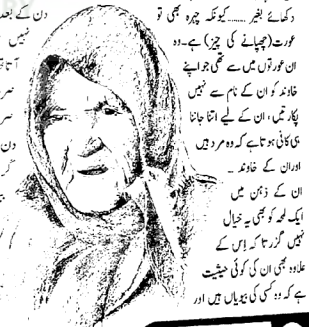 دکھائے بغیر ........ کیونکہ چہرہ بھی تو
عورت (چھپانے کی چیز) ہے۔ وہ
ان عورتوں میں سے تھی جو اپنے
خاوند کو ان کے نام سے نہیں
پکارتیں، ان کے لیے اتنا جاننا
ہی کافی ہوتا ہے کہ وہ مرد ہیں
اور ان کے خاوند ..
ان کے ذہن میں
ایک لمحہ کو بھی یہ خیال
نہیں گزرتا کہ اِس کے
علاوہ بھی ان کی کوئی حیثیت
ہے کہ وہ کسی کی بیویاں ہیں اور
دن کے بعد
نہیں
دن